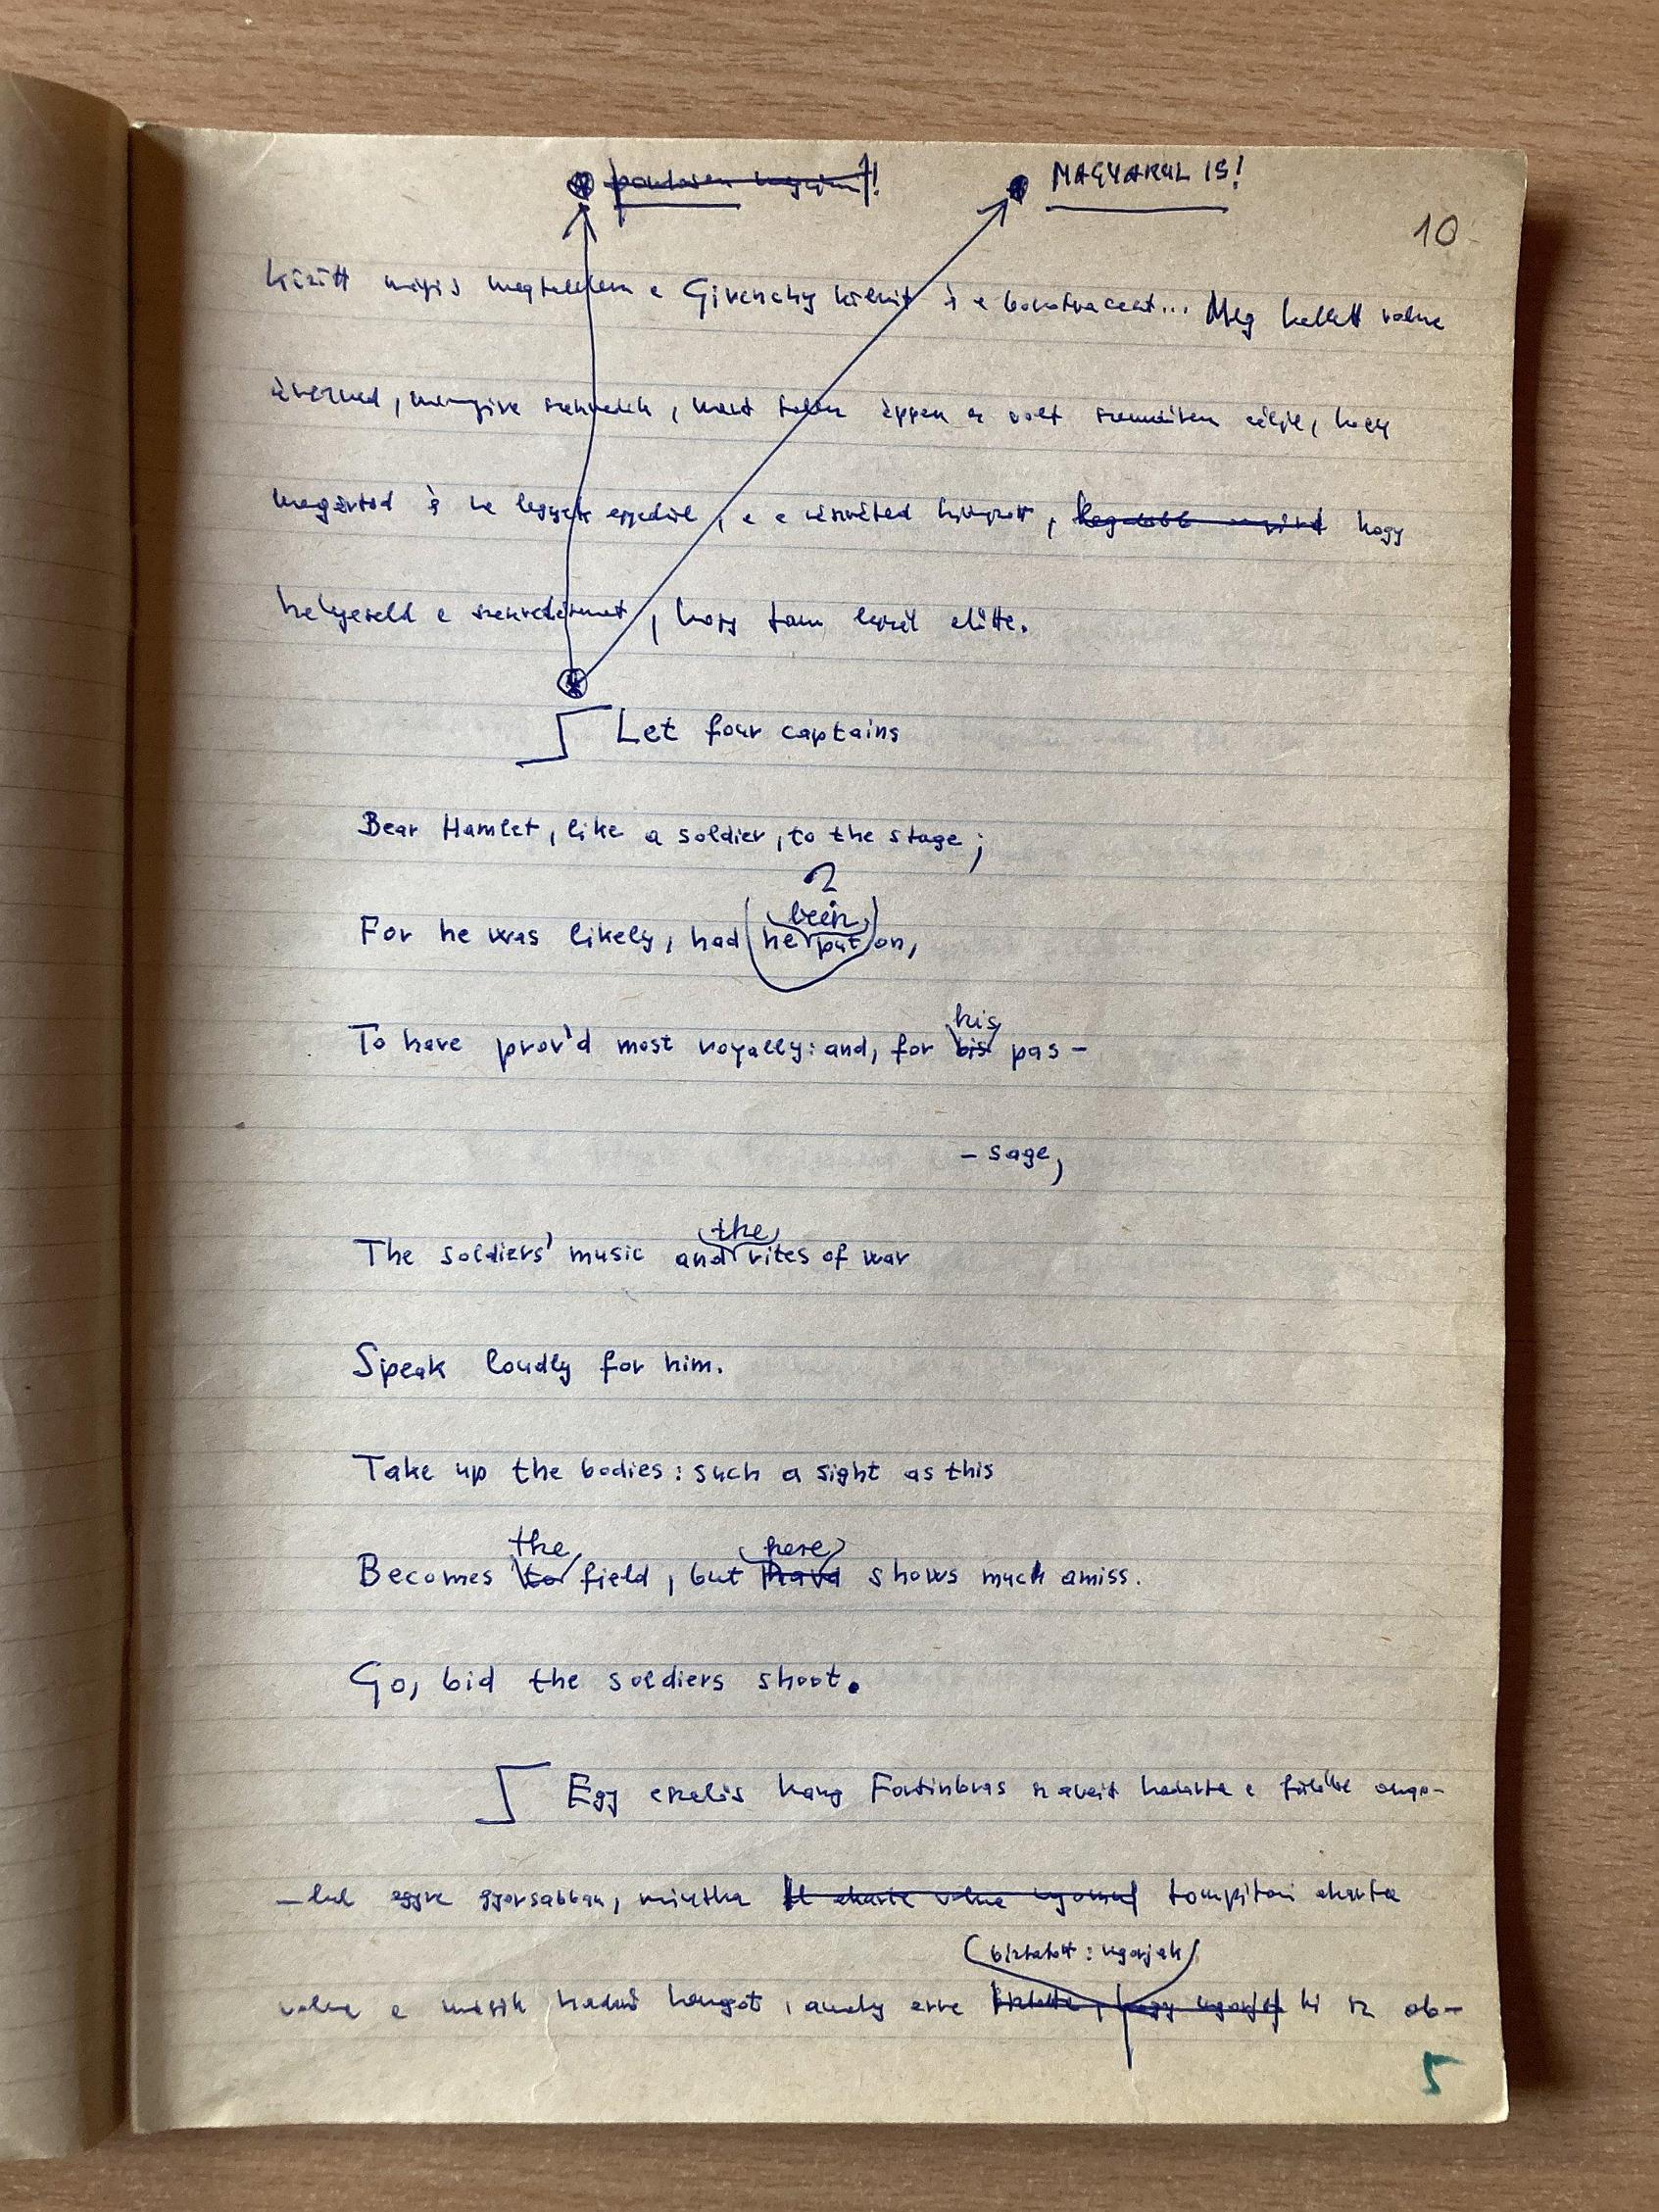 MAGYARUL IS!
10
között mégis megtaláltam a Givenchy kölnit és a borotvaecset... Meg kellett volna
értened, mennyire szenvedek, hogy
megértsd és ne legyek egyedül, hogy
helyeseld a szenvedésemet, hogy
Let four captains
Bear Hamlet, like a soldier, to the stage;
2
been
For he was likely, had he put on,
his
To have prov'd most royally: and, for bis pas-
- sage,
the
The soldiers' music and rites of war
Speak loudly for him.
Take up the bodies: such a sight as this
the here
Becomes to field, but have shows much amiss.
Go, bid the soldiers shoot.
Egy hang Fortinbras szavait hadarta a fülébe ango-
-lul egyre gyorsabban, mintha tompítani akarta
biztatott: ugorjak
volna a másik hangot, amely arra ki az ab-
5